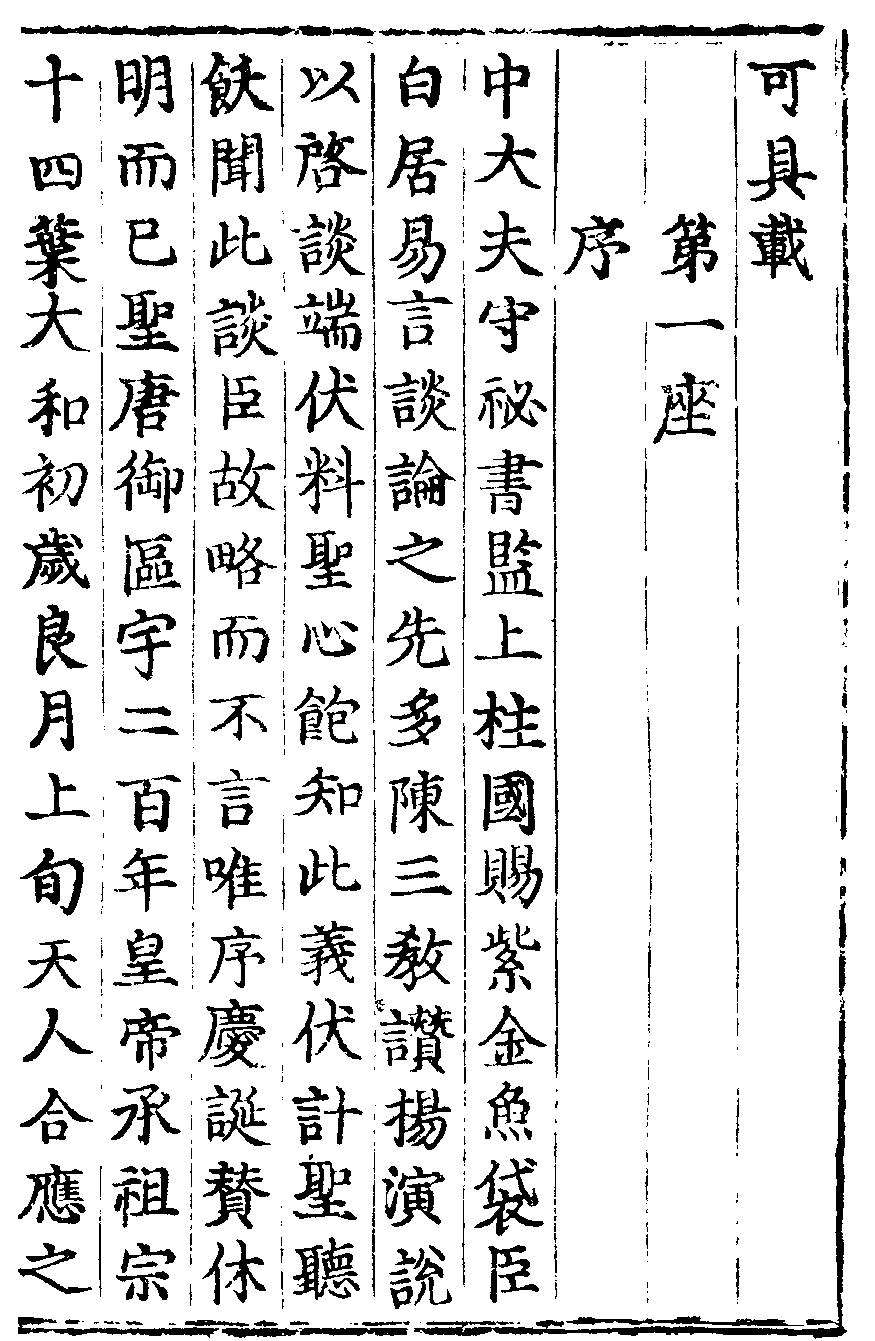 可具載
第一座
序
中大夫守祕書監上柱國賜紫金魚袋臣
白居易言談論之先多陳三教讚揚演說
以啓談端伏料聖心飽知此義伏計聖聽
飫聞此談臣故略而不言唯序慶誕贊休
明而已聖唐御區宇二百年皇帝承祖宗
十四葉大和初歲良月上旬天人合應之